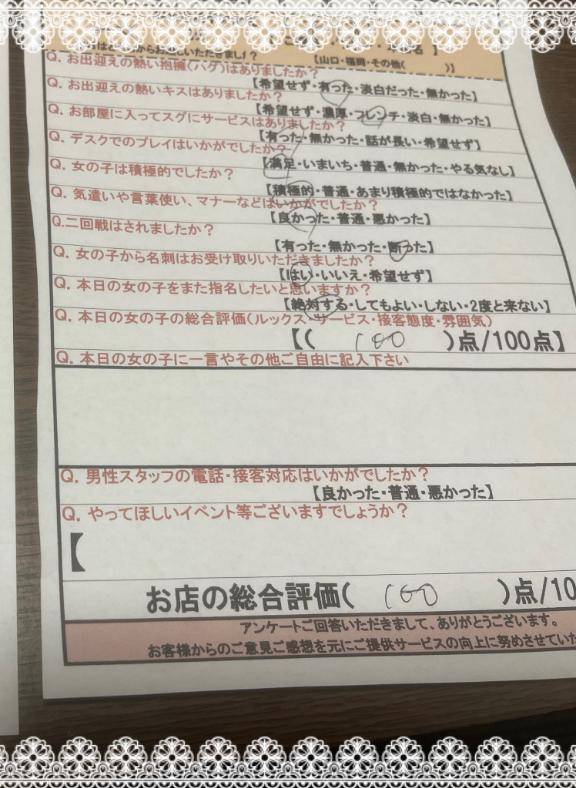 【山口・福岡・その他(　　　)】
Q. お出迎えの熱い抱擁(ハグ)はありましたか？
【希望せず・有った・淡白だった・無かった】
Q. お出迎えの熱いキスはありましたか？
【希望せず・濃厚・フレンチ・淡白・無かった】
Q. お部屋に入ってスグにサービスはありましたか？
【有った・無かった・話が長い・希望せず】
Q. デスクでのプレイはいかがでしたか？
【満足・いまいち・普通・無かった・やる気なし】
Q. 女の子は積極的でしたか？
【積極的・普通・あまり積極的ではなかった】
Q. 気遣いや言葉使い、マナーなどはいかがでしたか？
【良かった・普通・悪かった】
Q.二回戦はされましたか？
【有った・無かった・断った】
Q. 女の子から名刺はお受け取りいただきましたか？
【はい・いいえ・希望せず】
Q. 本日の女の子をまた指名したいと思いますか？
【絶対する・してもよい・しない・2度と来ない】
Q. 本日の女の子の総合評価(ルックス・サービス・接客態度・雰囲気)
【( 100 )点/100点】
Q. 本日の女の子に一言やその他ご自由に記入下さい
Q. 男性スタッフの電話・接客対応はいかがでしたか？
【良かった・普通・悪かった】
Q. やってほしいイベント等ございますでしょうか？
【
お店の総合評価( 100 )点/10
アンケートご回答いただきまして、ありがとうございます。
お客様からのご意見ご感想を元にご提供サービスの向上に努めさせていた